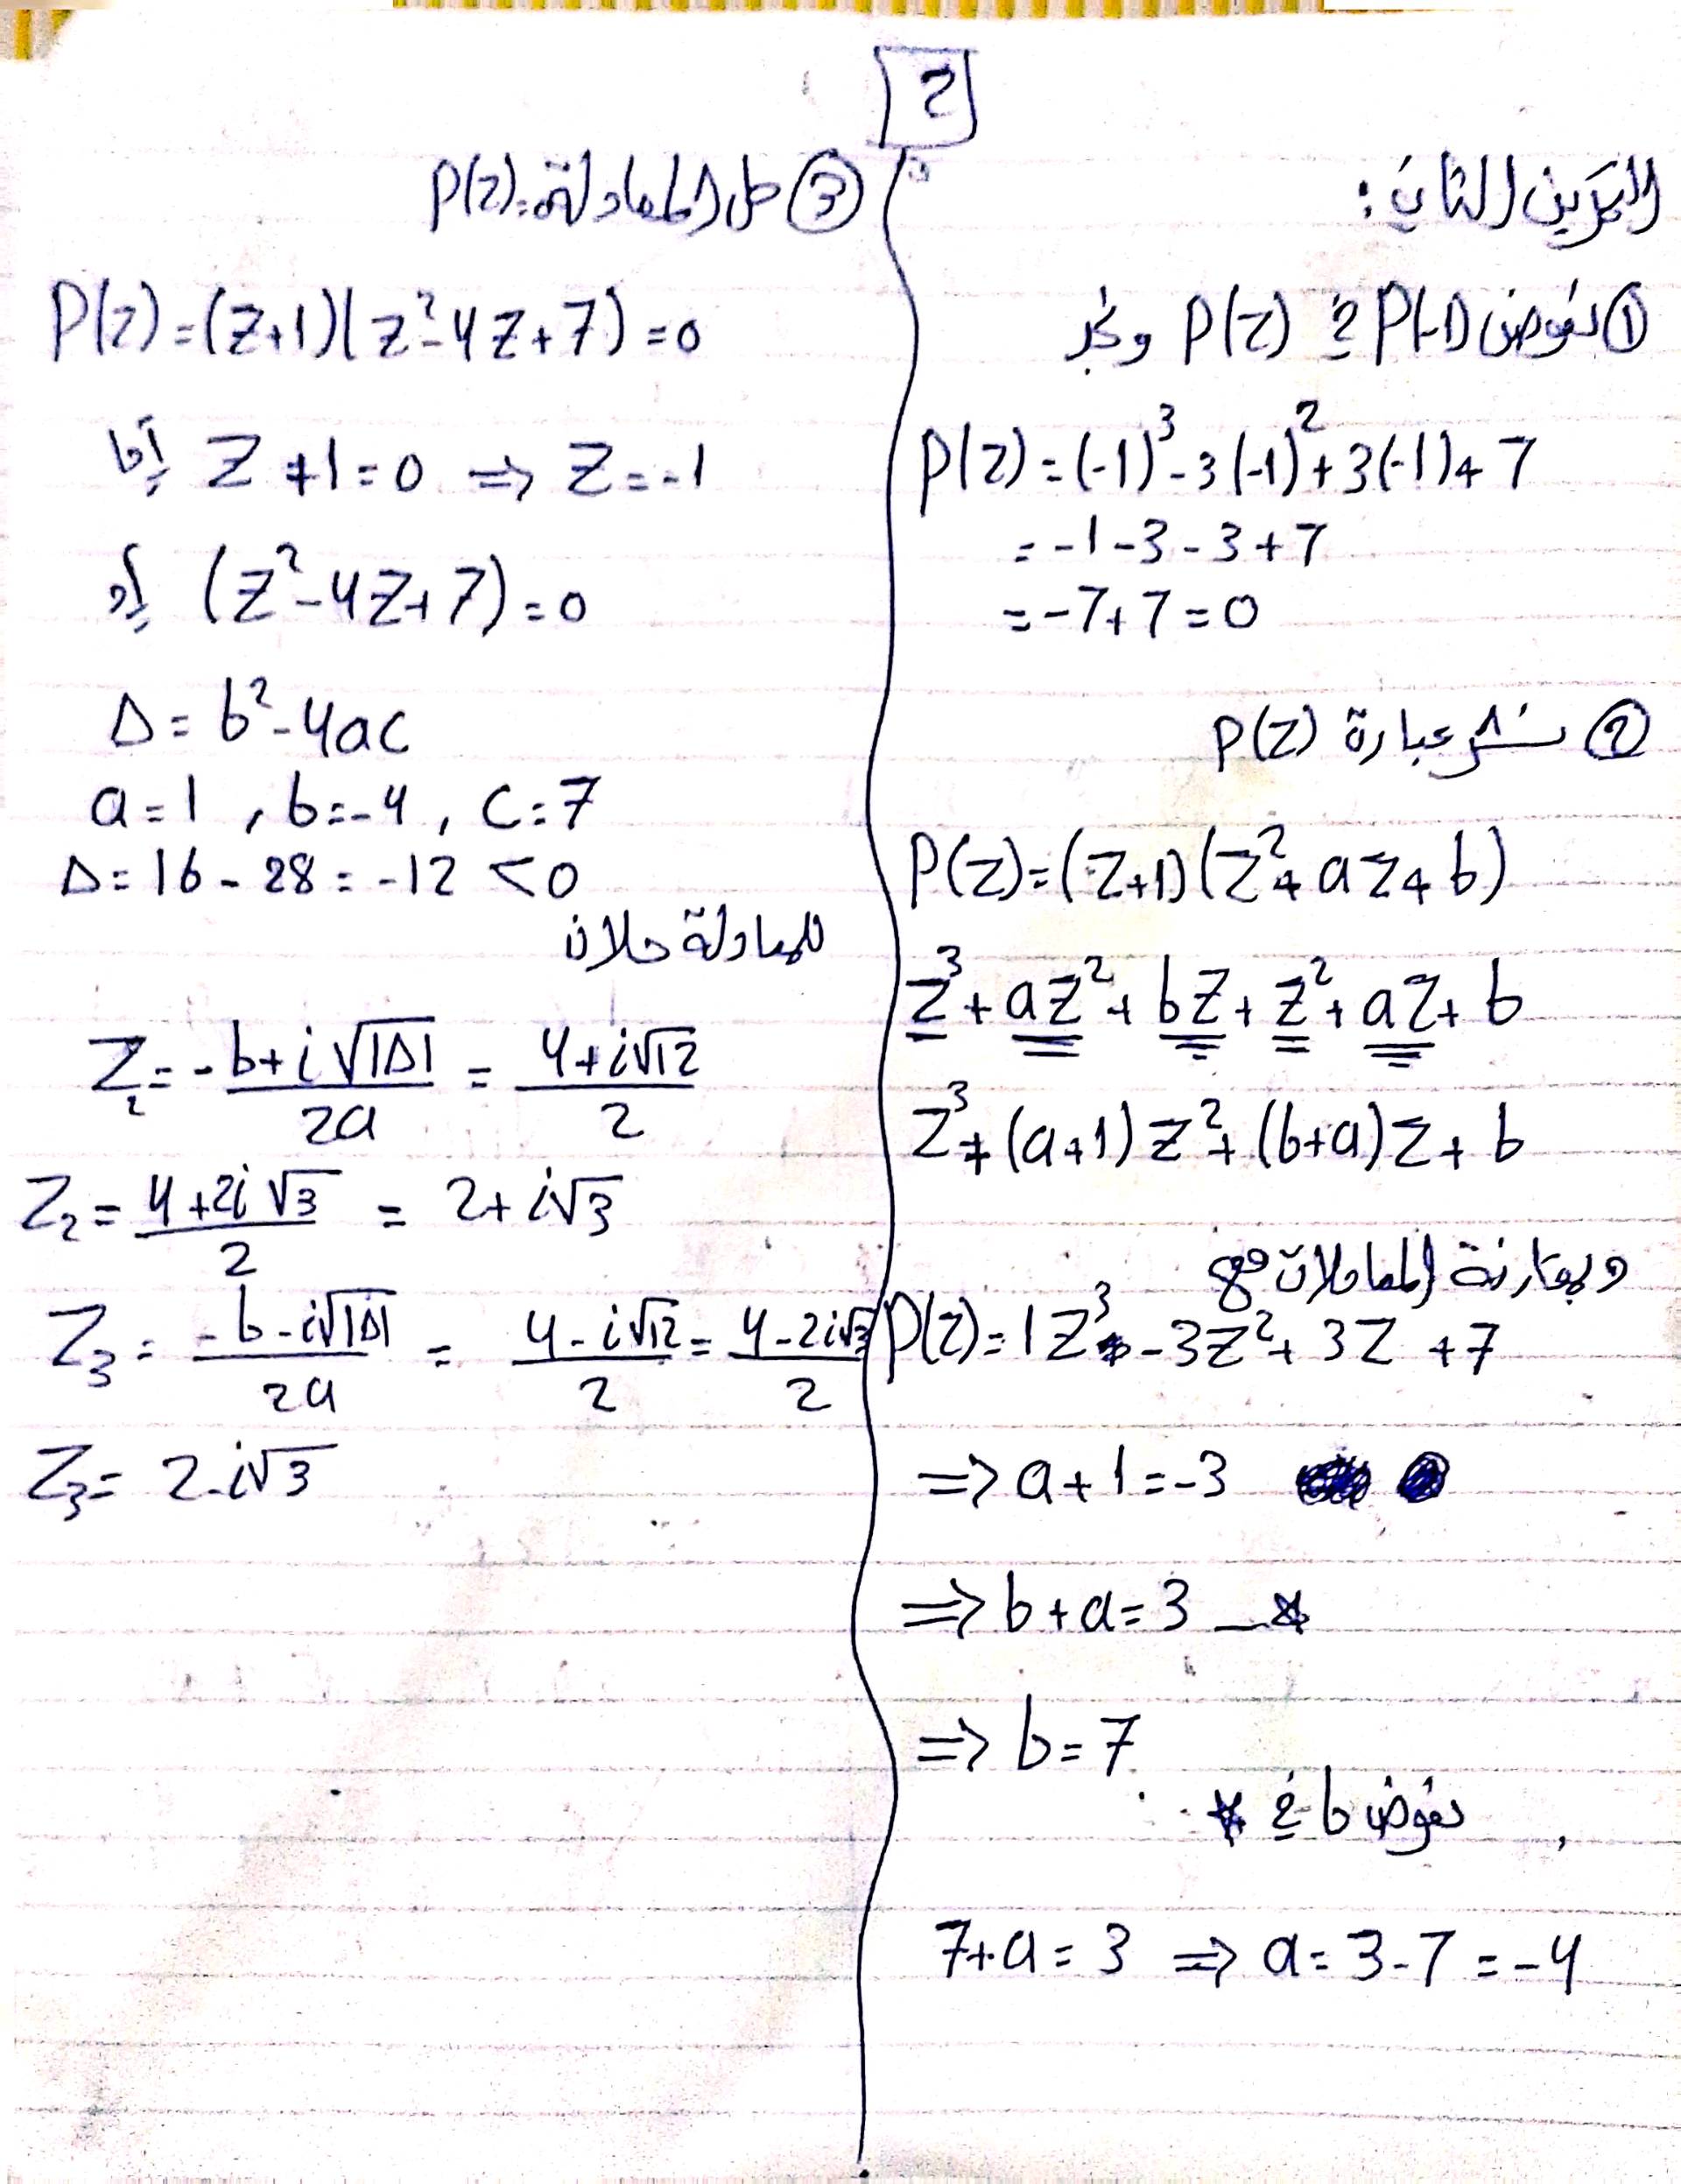 2
التمرين الثاني :
① نعوض P(-1) في P(z) ونجد
P(z) = (-1)³ - 3(-1)² + 3(-1) + 7
= -1 - 3 - 3 + 7
= -7 + 7 = 0
② ننشر عبارة P(Z)
P(Z) = (Z+1)(Z² + aZ + b)
Z³ + aZ² + bZ + Z² + aZ + b
Z³ + (a+1)Z² + (b+a)Z + b
وبمقارنة المعاملات مع
P(Z) = 1Z³ - 3Z² + 3Z + 7
=> a + 1 = -3
=> b + a = 3 _*
=> b = 7
نعوض b في *
7 + a = 3 => a = 3 - 7 = -4
③ حل المعادلة: P(z)
P(z) = (Z+1)(Z² - 4Z + 7) = 0
إما Z + 1 = 0 => Z = -1
أو (Z² - 4Z + 7) = 0
Δ = b² - 4ac
a = 1 , b = -4 , c = 7
Δ = 16 - 28 = -12 < 0
للمعادلة حلان
Z₂ = -b + i√|Δ| / 2a = 4 + i√12 / 2
Z₂ = 4 + 2i√3 / 2 = 2 + i√3
Z₃ = -b - i√|Δ| / 2a = 4 - i√12 / 2 = 4 - 2i√3 / 2
Z₃ = 2 - i√3